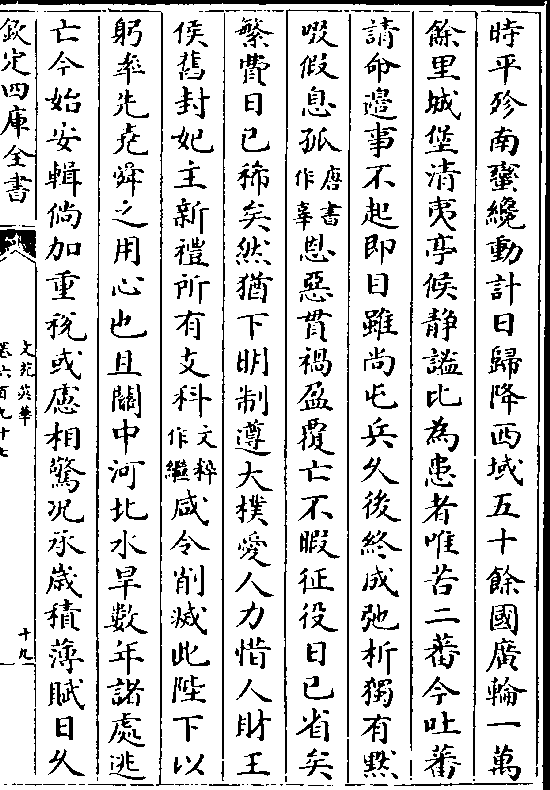 時平殄南蠻纔動計日歸降西域五十餘國廣輪一萬
餘里城堡清夷亭候静謐比為患者唯苦二蕃今吐蕃
請命邉事不起即目雖尚屯兵久後終成弛柝獨有黙
啜假息孤唐書作辜恩惡貫禍盈覆亡不暇征役日已省矣
繁費日已稀矣然猶下明制遵大樸愛人力惜人財王
侯舊封妃主新禮所有支料文粹作繼咸令削減此陛下以
躬率先堯舜之用心也且關中河北水旱數年諸處逃
亡今始安輯倘加重稅或慮相驚况承歲積薄賦日久
欽定四庫全書
文苑英華
卷六百九十七
十九